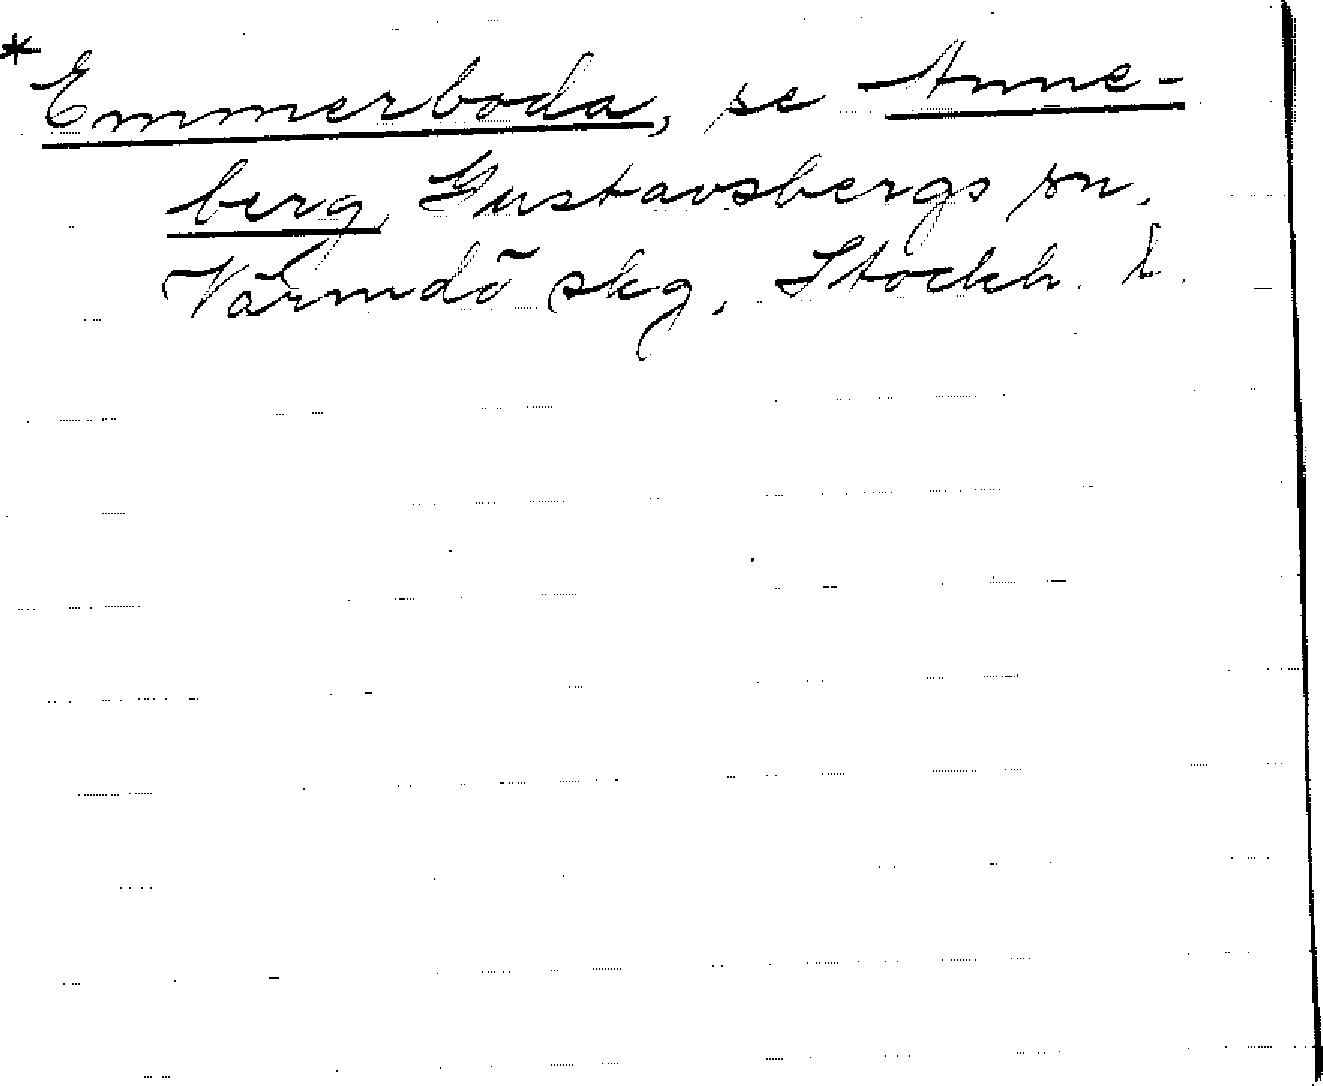 *Emmerboda, se Anne-
berg, Gustavsbergs sn.
Värmdö skg, Stockh. l.